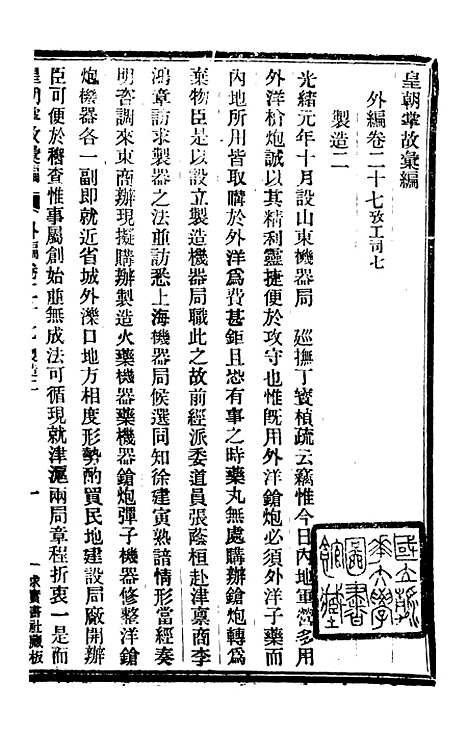 皇朝掌故彙編
外編卷二十七攷工司七
製造二
光緒元年十月設山東機器局 巡撫丁寶楨疏云竊惟今日內地軍營多用
外洋槍炮誠以其精利靈捷便於攻守也惟既用外洋鎗炮必須外洋子藥而
內地所用皆取購於外洋爲費甚鉅且恐有事之時藥丸無處購辦鎗炮轉爲
棄物臣是以設立製造機器局職此之故前經派委道員張蔭桓赴津稟商李
鴻章訪求製器之法並訪悉上海機器局候選同知徐建寅熟諳情形當經奏
明咨調來東商辦現擬購辦製造火藥機器藥機器鎗炮彈子機器修整洋鎗
炮機器各一副即就近省城外濼口地方相度形勢酌買民地建設局廠開辦
臣可便於稽查惟事屬創始並無成法可循現就津滬兩局章程折衷一是而
皇朝掌故彙編 外編卷二十七 製造二 一 求實書社藏板
國立清華大學圖書館藏